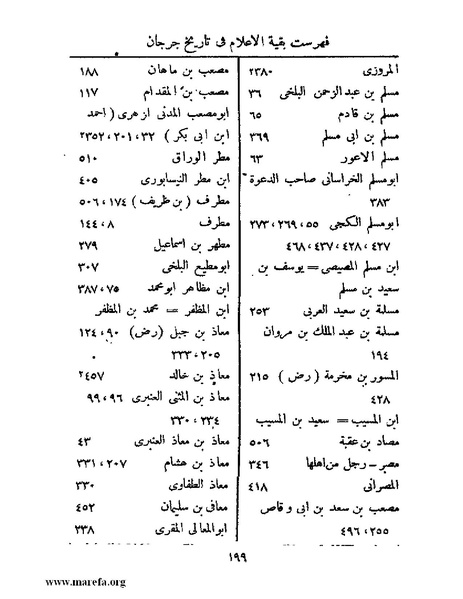 فهرست بقية الاعلام فى تاريخ جرجان
المروزى ٢٣٨٠
مسلم بن عبد الرحمن البلخى ٣٦
مسلم بن قادم ٦٥
مسلم بن ابى مسلم ٣٦٩
مسلم الاعور ٦٣
ابومسلم الخراسانى صاحب الدعوة
٣٨٣
ابومسلم الكجى ٥٥ ، ٢٦٩ ، ٢٧٣
٤٢٧ ، ٤٢٨ ، ٤٣٧ ، ٤٦٨
ابن مسلم المصيصى = يوسف بن
سعيد بن مسلم
مسلمة بن سعيد العربى ٢٥٣
مسلمة بن عبد الملك بن مروان
١٩٤
المسور بن مخرمة ( رض ) ٢١٥
٤٢٨
ابن المسيب = سعيد بن المسيب
مصاد بن عقبة ٥٠٦
مصر – رجل من اهلها ٣٤٦
المصرانى ٤١٨
مصعب بن سعد بن ابى وقاص
٢٥٥ ، ٤٩٦
مصعب بن ماهان ١٨٨
مصعب بن المقدام ١١٧
ابومصعب المدنى ازهرى ( احمد
ابن ابى بكر ) ٣٢ ، ٢٠١ ، ٢٣٥٢
مطر الوراق ٥١٠
ابن مطر النيسابورى ٤٠٥
مطرف ( بن ظريف ) ١٧٤ ، ٥٠٦
مطرف ٨ ، ١٤٤
مطهر بن اسماعيل ٢٧٩
ابومطيع البلخى ٣٠٧
ابن مظاهر ابومحمد ٧٥ ، ٣٨٧
ابن المظفر = محمد بن المظفر
معاذ بن جبل ( رض ) ٩٠ ، ١٢٤
٢٠٥ ، ٣٣٣
معاذ بن خالد ٢٤٥٧
معاذ بن المثنى العنبرى ٩٦ ، ٩٩
٢٣٤ ، ٣٣٠
معاذ بن معاذ العنبرى ٤٣
معاذ بن هشام ٢٠٧ ، ٣٣١
معاذ الطفاوى ٣٣٠
معافى بن سليمان ٤٥٢
ابوالمعالى المقرى ٣٣٨
١٩٩
www.marefa.org